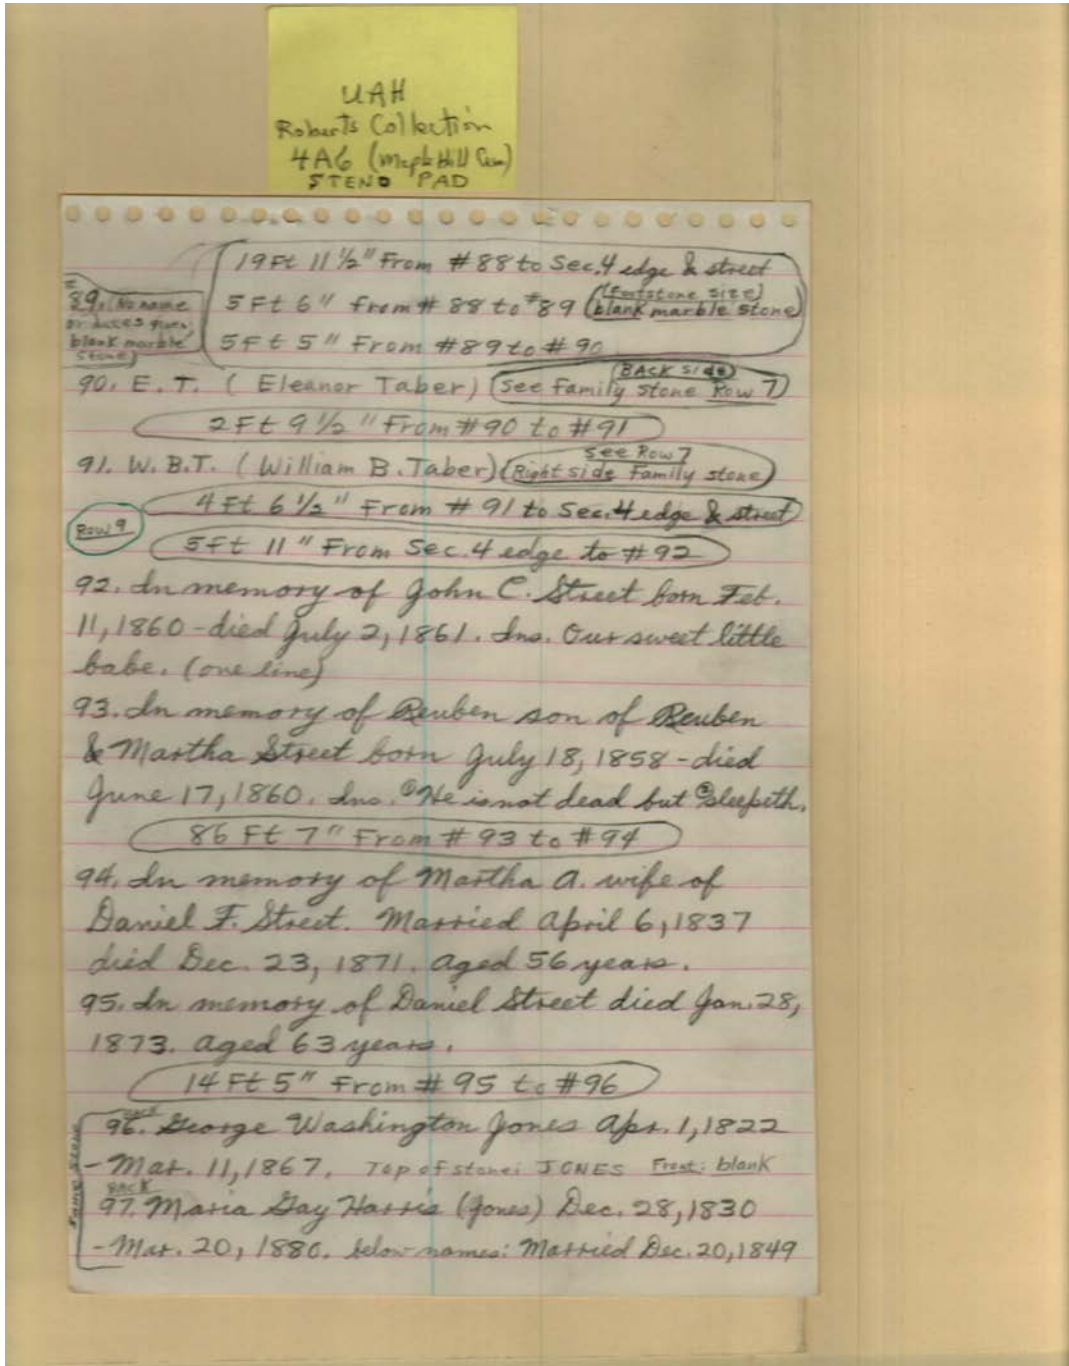 UAH
Roberts Collection
4A6 (Maple Hill Cem)
STENO PAD
19Ft 11 1/2" From #88 to Sec. 4 edge & street
#89. (No name
or dates given,
blank marble
stone)
5Ft 6" From #88 to #89 (blank marble stone)
(footstone size)
5Ft 5" From #89 to #90
90. E.T. (Eleanor Taber) (See Family stone Row 7)
BACK side
2Ft 9 1/2" From #90 to #91
91. W.B.T. (William B. Taber) (Right side Family stone)
See Row 7
4Ft 6 1/2" From #91 to Sec. 4 edge & street
Row 9
5Ft 11" From Sec. 4 edge to #92
92. In memory of John C. Street born Feb.
11, 1860 - died July 2, 1861. Ins. Our sweet little
babe. (one line)
93. In memory of Reuben son of Reuben
& Martha Street born July 18, 1858 - died
June 17, 1860. Ins. ①He is not dead but ②sleepeth.
86 Ft 7" From #93 to #94
94. In memory of Martha A. wife of
Daniel F. Street. Married April 6, 1837
died Dec. 23, 1871. Aged 56 years.
95. In memory of Daniel Street died Jan. 28,
1873. Aged 63 years.
14 Ft 5" From #95 to #96
Same Stone
BACK
96. George Washington Jones Apr. 1, 1822
- Mar. 11, 1867. Top of stone: JONES Front: blank
BACK
97. Maria Gay Harris (Jones) Dec. 28, 1830
- Mar. 20, 1880. below names: Married Dec. 20, 1849